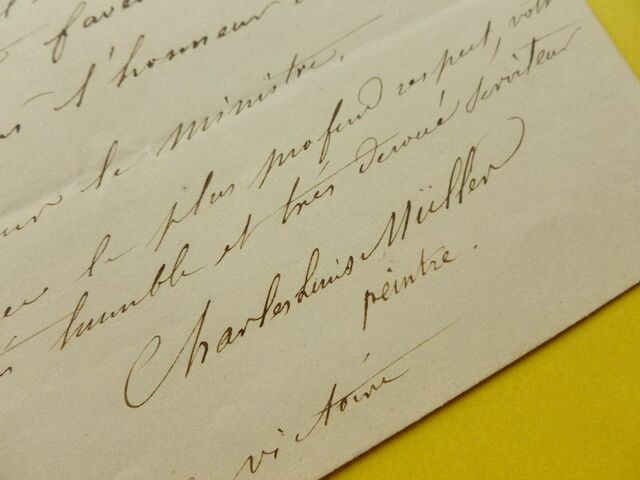 l'honneur
le ministre,
le plus profond respect, votre
humble et très dévoué serviteur
Charles Louis Müller
peintre.
victoire